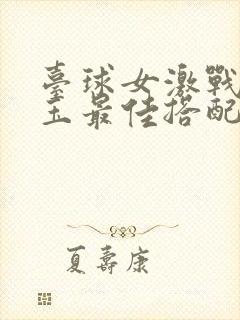 臺球女激戰
王最佳搭配
夏壽康